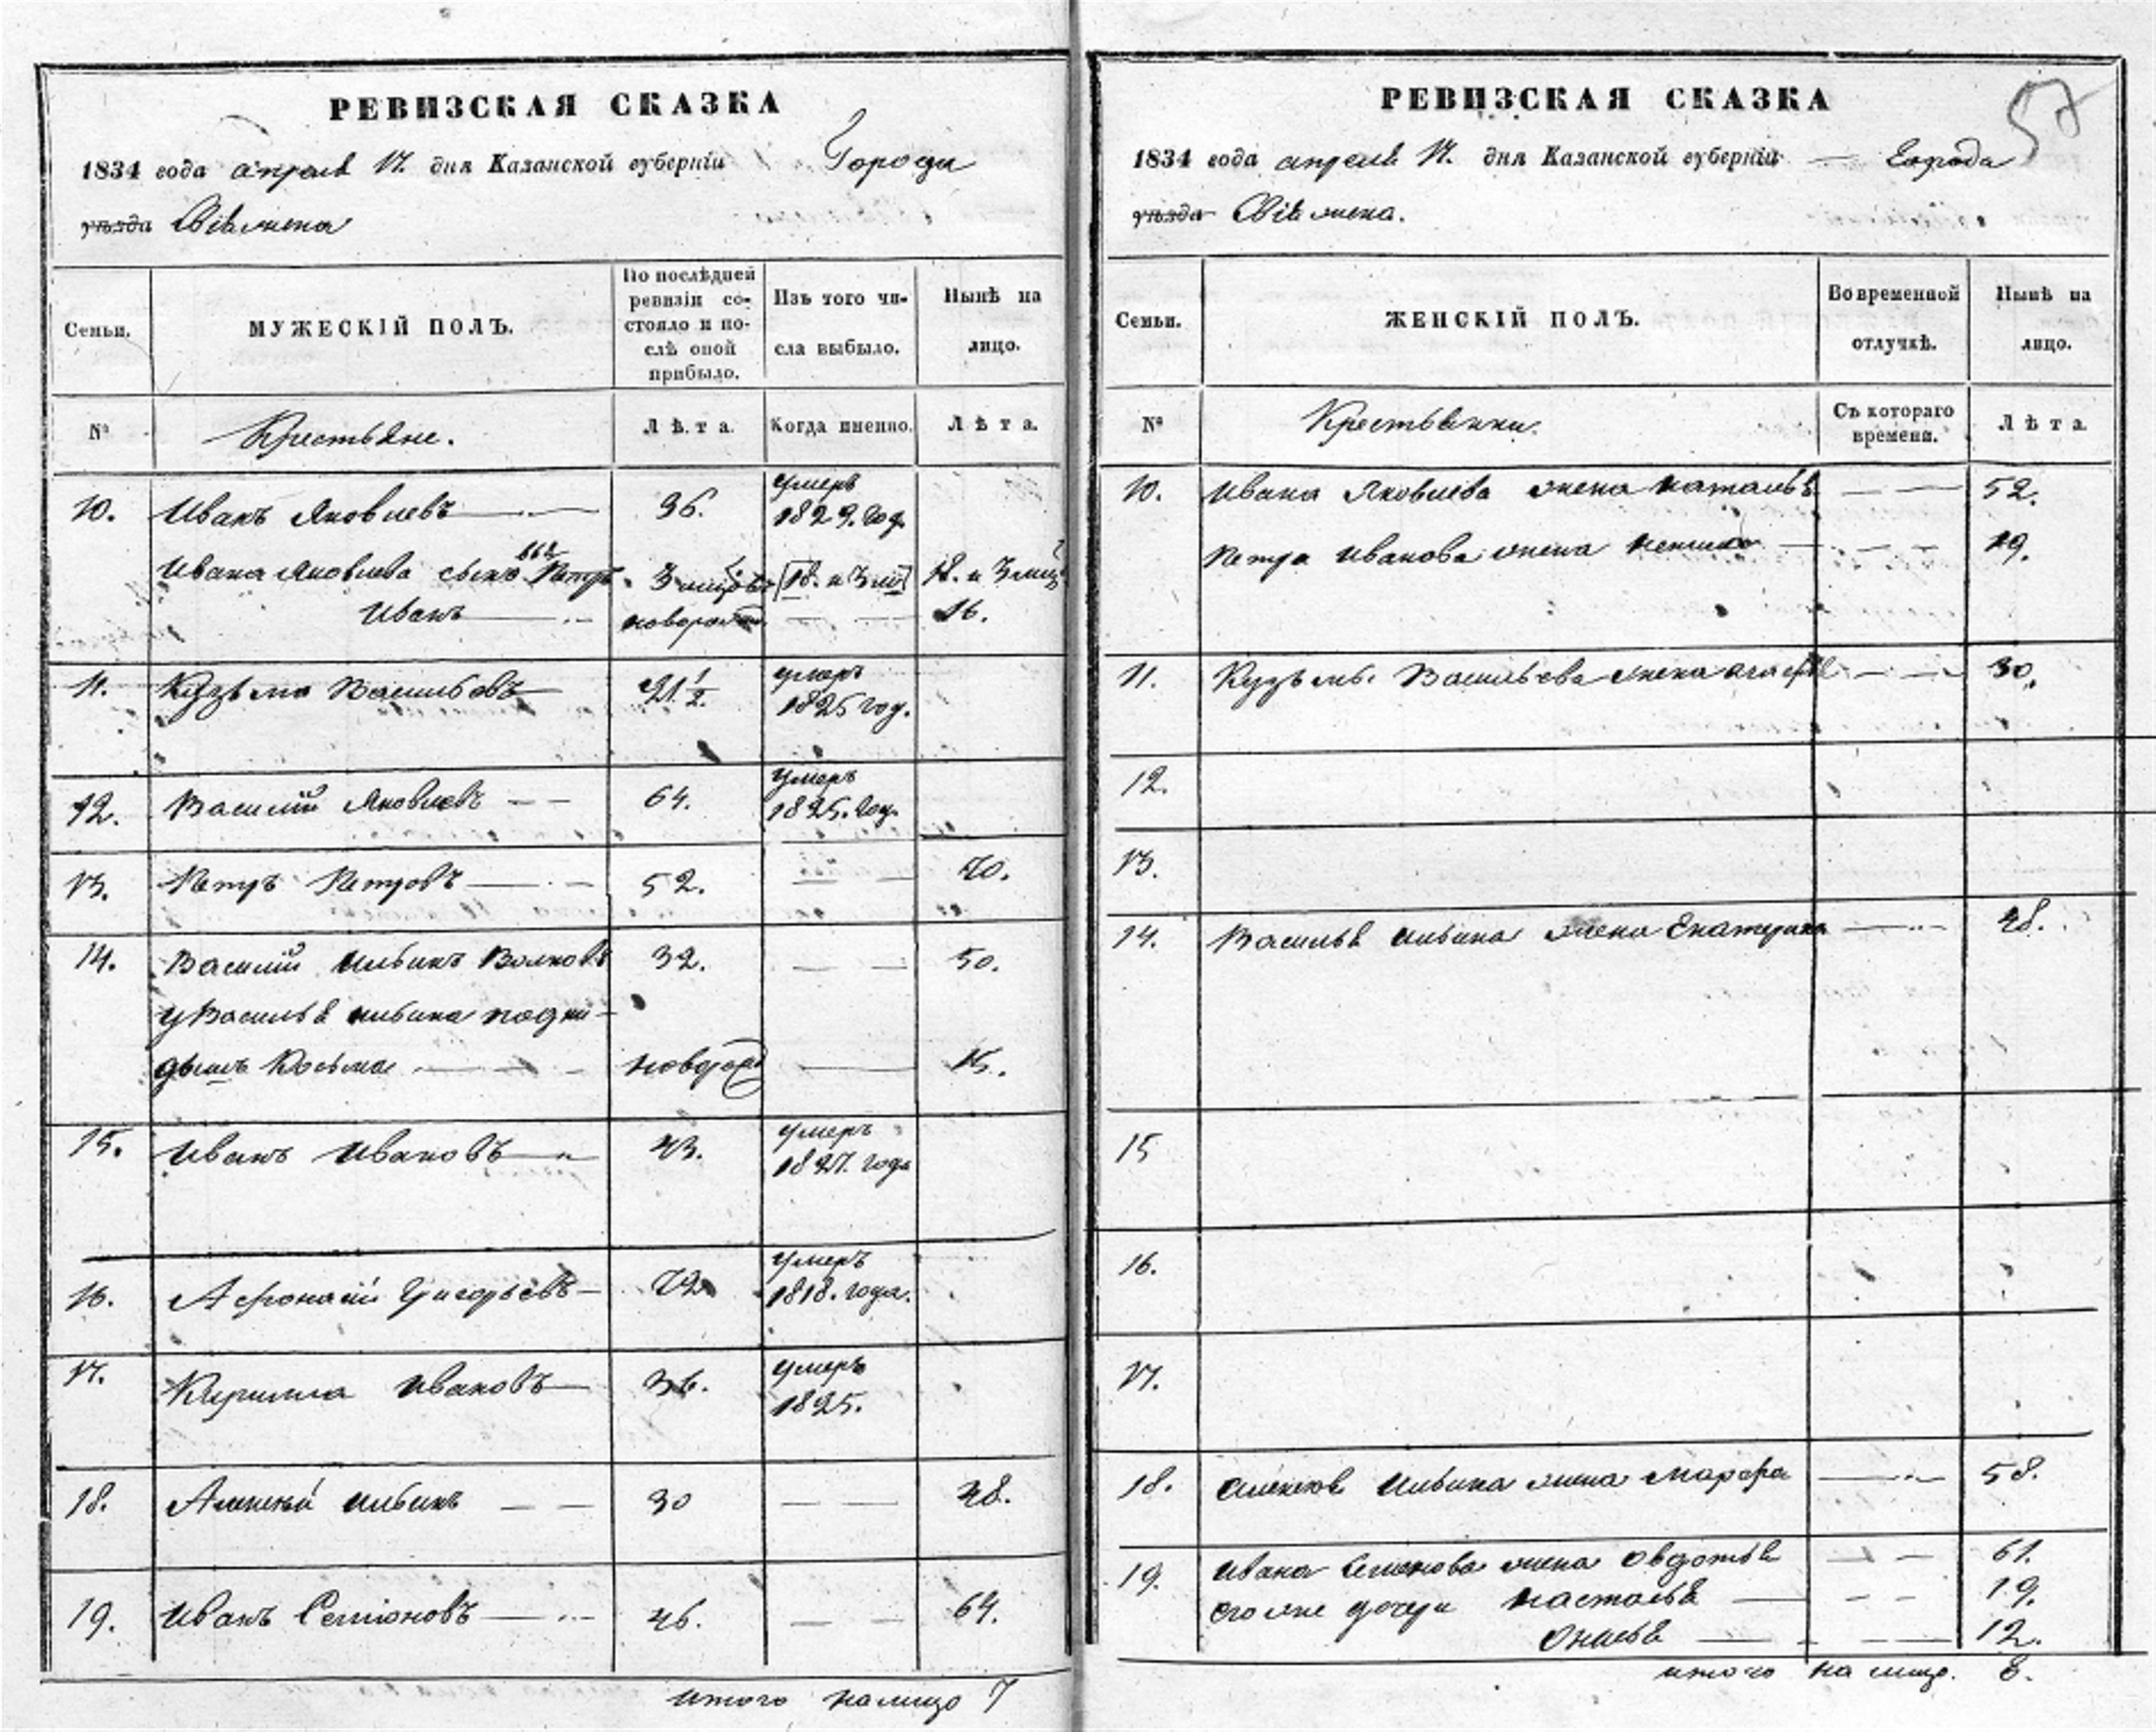 РЕВИЗСКАЯ СКАЗКА
1834 года апреля 17. дня Казанской губерніи Города
уѣзда
Семьи.
МУЖЕСКІЙ ПОЛЪ.
По послѣдней ревизіи со-
стояло и по-
слѣ оной
прибыло.
Изъ того чи-
сла выбыло.
Нынѣ на
лицо.
№ Крестьяне. Лѣта. Когда именно. Лѣта.
умеръ
10. Иванъ Яковлевъ 36. 1829. год.
Ивана Яковлева сынъ Петръ 18. и 3
Иванъ 16.
умеръ
11. Кузьма Васильевъ 21 1/2. 1825 год.
умеръ
12. Василій Яковлевъ 64. 1825. год.
13. Петръ Петровъ 52. 70.
14. Василій Ильинъ Волковъ 32. 50.
у Василья Ильина
Косьма 15.
умеръ
15. Иванъ Ивановъ 43. 1827. года
умеръ
16. Афонасій Григорьевъ 72 1818. года.
умеръ
17. Кирилла Ивановъ 36. 1825.
18. Алексѣй Ильинъ 30 48.
19. Иванъ Семіоновъ 46. 64.
итого налицо 7
57
РЕВИЗСКАЯ СКАЗКА
1834 года апреля 17. дня Казанской губерніи Города
уѣзда
Семьи.
ЖЕНСКІЙ ПОЛЪ.
Во временной
отлучкѣ.
Нынѣ на
лицо.
№ Крестьянки. Съ котораго
времени. Лѣта.
10. Ивана Яковлева жена Наталья 52.
Петра Иванова жена 19.
11. Кузьмы Васильева жена Агафья 30.
12.
13.
14. Василья Ильина жена Екатерина 48.
15
16.
17.
18. Алексѣя Ильина жена Марфа 58.
19. Ивана Семенова жена Овдотья 61.
его же дочери Настасья 19.
12.
итого на лицо. 8.